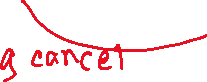 g cancel